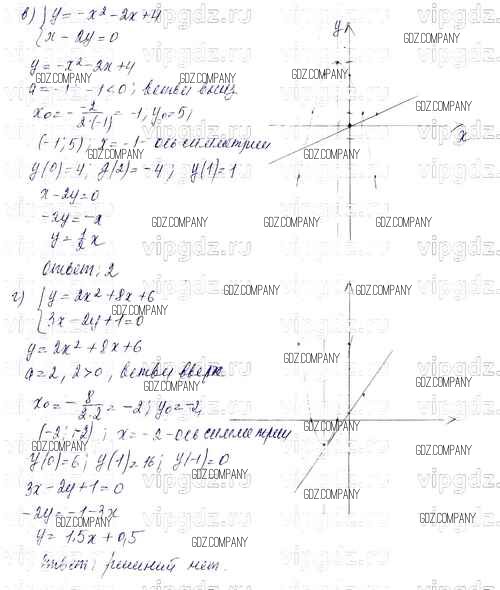 в) { y = -x² - 2x + 4
x - 2y = 0
y = -x² - 2x + 4
a = -1 -1 < 0; ветви вниз
x₀ = - -2/2·(-1) = -1, y₀ = 5;
(-1; 5); x = -1 - ось симметрии
y(0) = 4; y(2) = -4; y(1) = 1
x - 2y = 0
-2y = -x
y = 1/2 x
Ответ: 2
г) { y = 2x² + 8x + 6
3x - 2y + 1 = 0
y = 2x² + 8x + 6
a = 2, 2 > 0, ветви вверх
x₀ = - 8/2·2 = -2; y₀ = -2,
(-2; -2); x = -2 - ось симметрии
y(0) = 6; y(1) = 16; y(-1) = 0
3x - 2y + 1 = 0
-2y = -1 - 3x
y = 1,5x + 0,5
Ответ: решений нет.
y
x
GDZ.COMPANY
vipgdz.ru